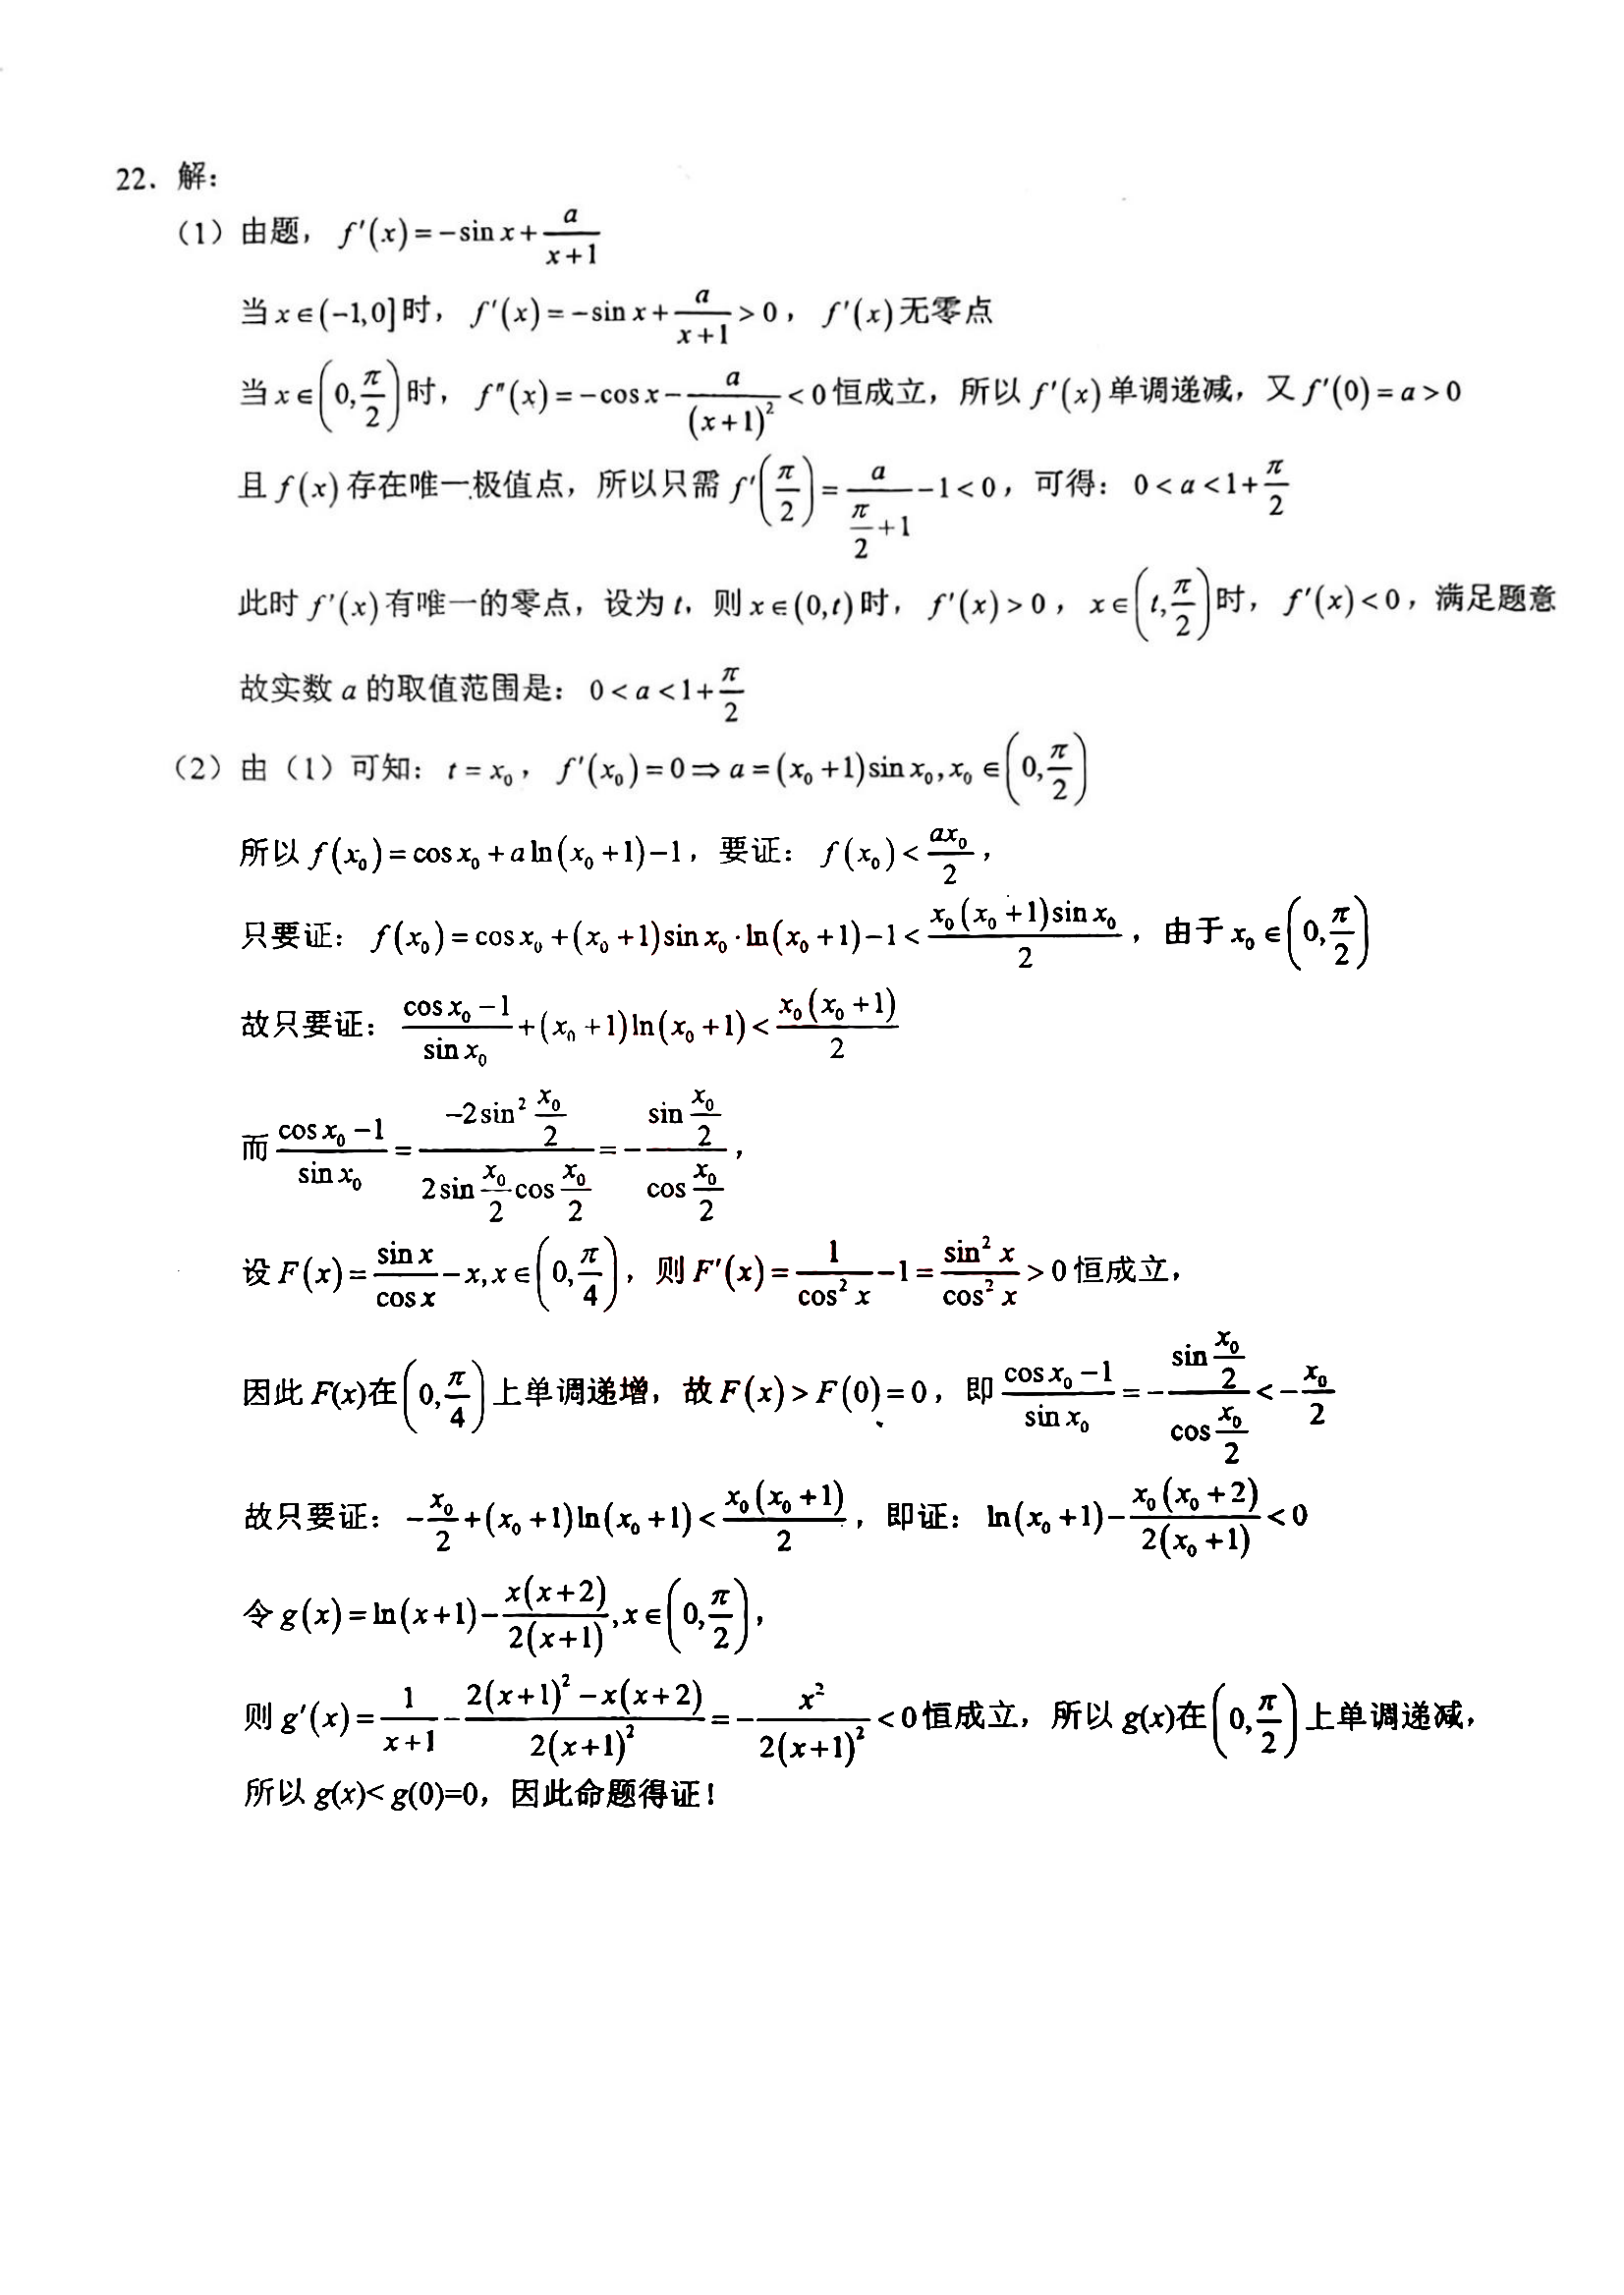 22. 解：
（1）由题，$f'(x)=-\sin x+\frac{a}{x+1}$
当$x\in(-1,0]$时，$f'(x)=-\sin x+\frac{a}{x+1}>0$，$f'(x)$无零点
当$x\in\left(0,\frac{\pi}{2}\right)$时，$f''(x)=-\cos x-\frac{a}{(x+1)^2}<0$恒成立，所以$f'(x)$单调递减，又$f'(0)=a>0$
且$f(x)$存在唯一极值点，所以只需$f'\left(\frac{\pi}{2}\right)=\frac{a}{\frac{\pi}{2}+1}-1<0$，可得：$0<a<1+\frac{\pi}{2}$
此时$f'(x)$有唯一的零点，设为$t$，则$x\in(0,t)$时，$f'(x)>0$，$x\in\left(t,\frac{\pi}{2}\right)$时，$f'(x)<0$，满足题意
故实数$a$的取值范围是：$0<a<1+\frac{\pi}{2}$
（2）由（1）可知：$t=x_0$，$f'(x_0)=0\Rightarrow a=(x_0+1)\sin x_0,x_0\in\left(0,\frac{\pi}{2}\right)$
所以$f(x_0)=\cos x_0+a\ln(x_0+1)-1$，要证：$f(x_0)<\frac{ax_0}{2}$，
只要证：$f(x_0)=\cos x_0+(x_0+1)\sin x_0\cdot\ln(x_0+1)-1<\frac{x_0(x_0+1)\sin x_0}{2}$，由于$x_0\in\left(0,\frac{\pi}{2}\right)$
故只要证：$\frac{\cos x_0-1}{\sin x_0}+(x_0+1)\ln(x_0+1)<\frac{x_0(x_0+1)}{2}$
而$\frac{\cos x_0-1}{\sin x_0}=\frac{-2\sin^2\frac{x_0}{2}}{2\sin\frac{x_0}{2}\cos\frac{x_0}{2}}=-\frac{\sin\frac{x_0}{2}}{\cos\frac{x_0}{2}}$，
设$F(x)=\frac{\sin x}{\cos x}-x,x\in\left(0,\frac{\pi}{4}\right)$，则$F'(x)=\frac{1}{\cos^2 x}-1=\frac{\sin^2 x}{\cos^2 x}>0$恒成立，
因此$F(x)$在$\left(0,\frac{\pi}{4}\right)$上单调递增，故$F(x)>F(0)=0$，即$\frac{\cos x_0-1}{\sin x_0}=-\frac{\sin\frac{x_0}{2}}{\cos\frac{x_0}{2}}<-\frac{x_0}{2}$
故只要证：$-\frac{x_0}{2}+(x_0+1)\ln(x_0+1)<\frac{x_0(x_0+1)}{2}$，即证：$\ln(x_0+1)-\frac{x_0(x_0+2)}{2(x_0+1)}<0$
令$g(x)=\ln(x+1)-\frac{x(x+2)}{2(x+1)},x\in\left(0,\frac{\pi}{2}\right)$，
则$g'(x)=\frac{1}{x+1}-\frac{2(x+1)^2-x(x+2)}{2(x+1)^2}=-\frac{x^2}{2(x+1)^2}<0$恒成立，所以$g(x)$在$\left(0,\frac{\pi}{2}\right)$上单调递减，
所以$g(x)<g(0)=0$，因此命题得证！